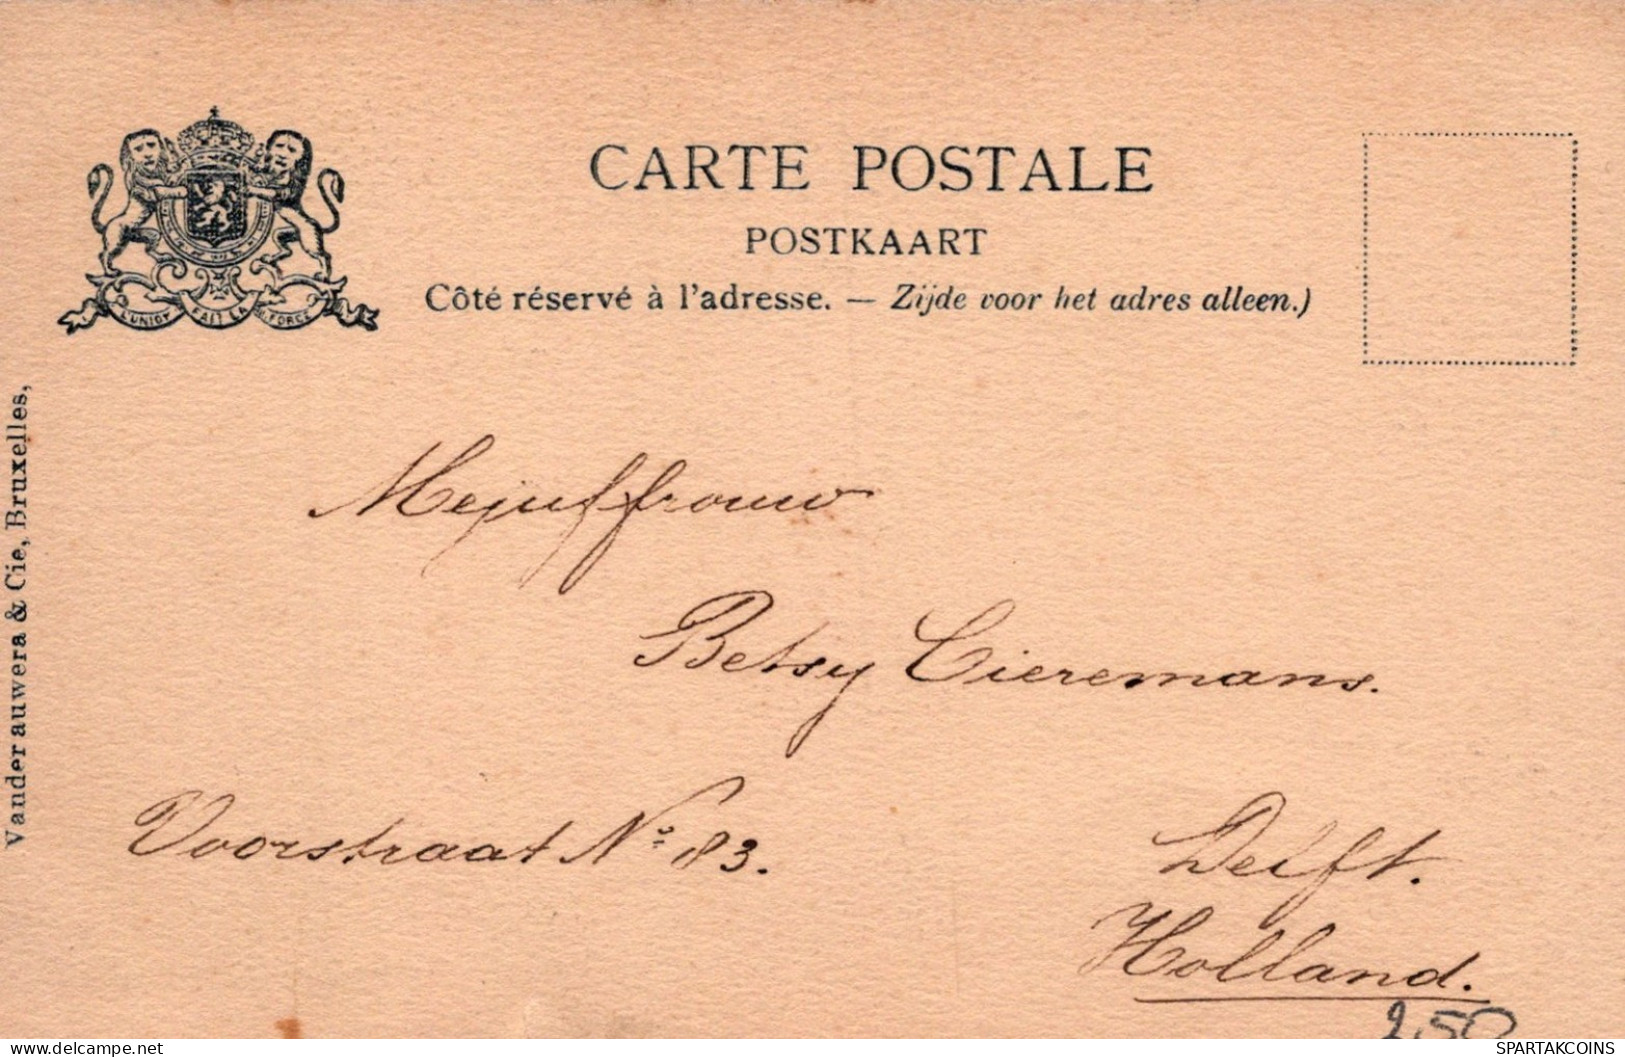 CARTE POSTALE
POSTKAART
Côté réservé à l'adresse. — Zijde voor het adres alleen.)
L'UNION FAIT LA FORCE
Vanderauwera & Cie, Bruxelles,
Mejuffrouw
Betsy Cieremans.
Voorstraat No 83.
Delft.
Holland.
2,50
www.delcampe.net
SPARTAKCOINS